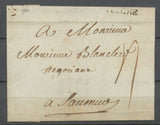 FLECHE
A Monsieur
Monsieur Blancler
negotiant
a Saumur